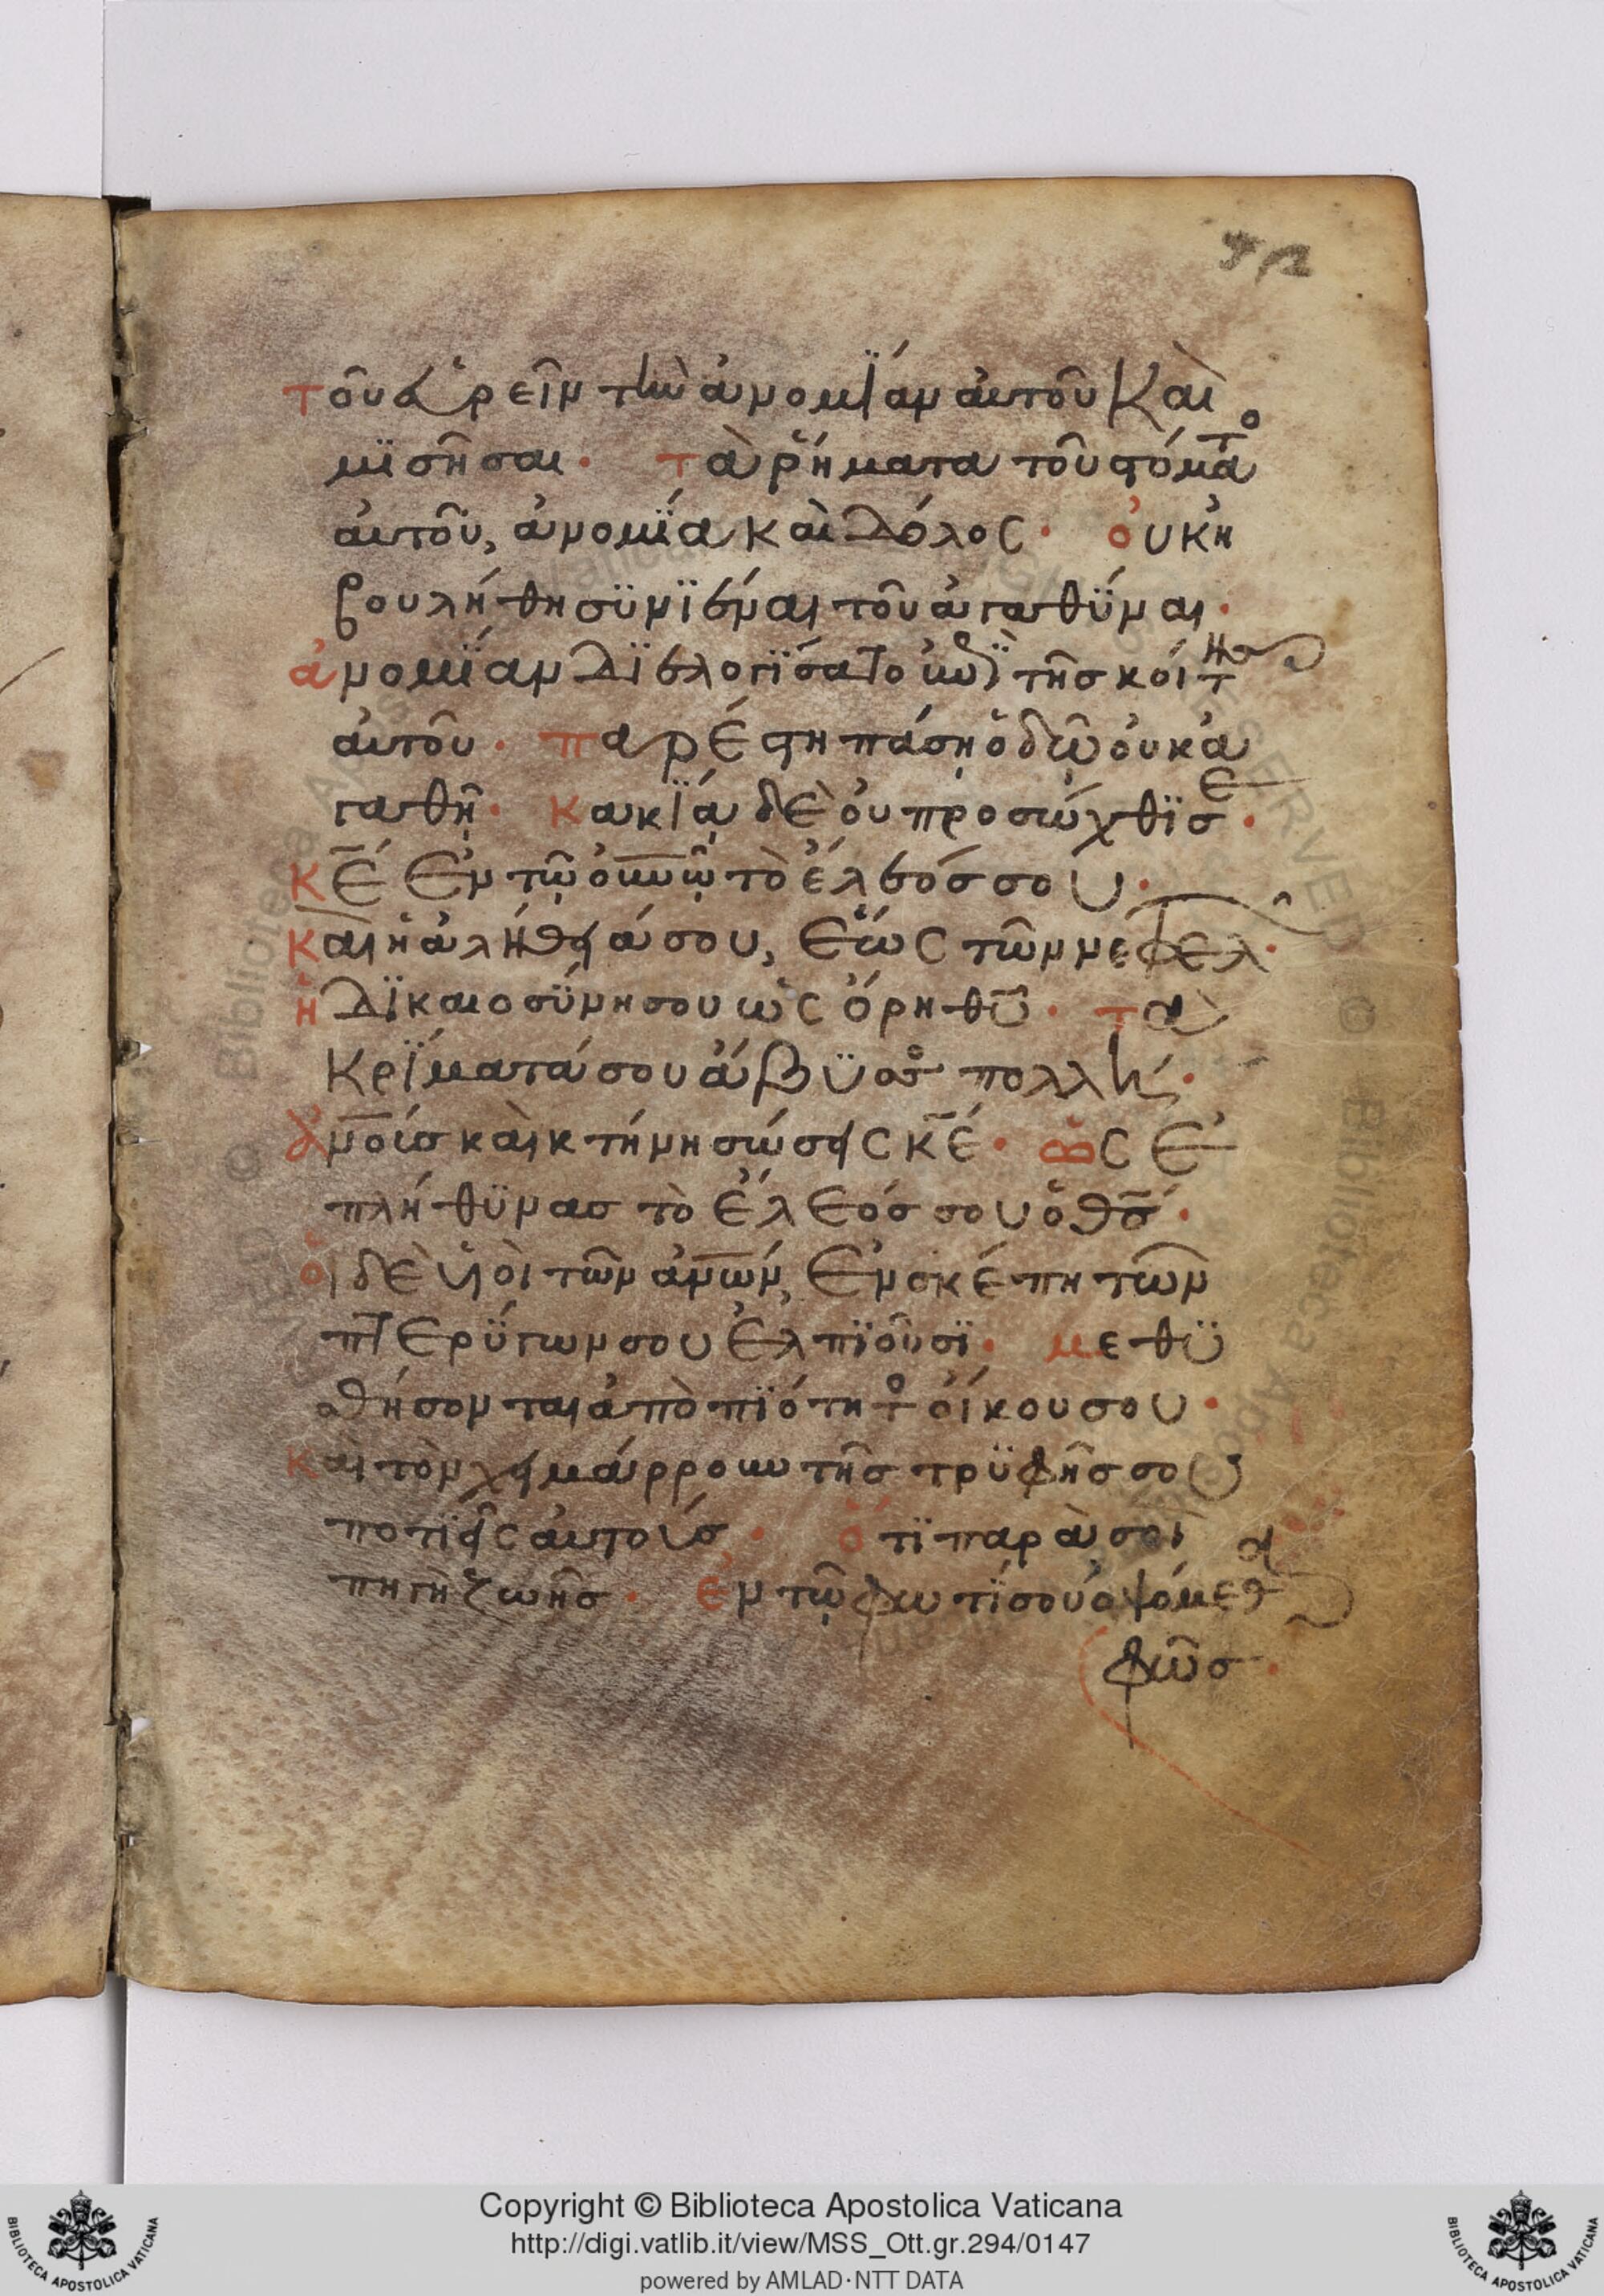 τοῦ εὑρεῖν τὴν ἀνομΐαν αὐτοῦ καὶ
μϊσῆσαι· τὰ ῥήματα τοῦ στόματο
αὐτοῦ, ἀνομΐα καὶ δόλος· οὐκ ἠ
βουλήθη συνϊέναι τοῦ ἀγαθϋναι·
ἀνομΐαν διελογΐσατο ἐπὶ τῆς κοίτης
αὐτοῦ· παρέστη πάσῃ ὁδῷ οὐκ ἀ
γαθῇ· κακΐᾳ δὲ οὐ προσώχθϊσε·
κ̅ε̅ ἐν τῷ ο̅υ̅ν̅ῷ τὸ ἔλεός σου·
καὶ ἡ ἀλήθειά σου, ἕως τῶν νεφελ·
ἡ δϊκαιοσΰνη σου ὡς ὄρη θ̅υ̅· τὰ
κρΐματά σου ἄβϋσσος πολλή·
α̅ν̅ο̅ι̅ς καὶ κτήνη σώσεις κ̅ε̅· ὡς ἐ
πλήθϋνας τὸ ἔλεός σου ὁ θ̅ς̅·
οἱ δὲ υἱοὶ τῶν α̅ν̅ω̅ν̅, ἐν σκέπη τῶν
πτερΰγων σου ἐλπϊοῦσϊ· μεθϋ
σθήσονται ἀπὸ πϊότητος οἴκου σου·
καὶ τὸν χειμάρρουν τῆς τρϋφῆς σου
ποτϊεῖς αὐτούς· ὅτϊ παρὰ σοὶ
πηγὴ ζωῆς· ἐν τῷ φωτΐ σου ὀψόμεθα
φῶς·
Copyright © Biblioteca Apostolica Vaticana
http://digi.vatlib.it/view/MSS_Ott.gr.294/0147
powered by AMLAD·NTT DATA
BIBLIOTECA APOSTOLICA VATICANA
BIBLIOTECA APOSTOLICA VATICANA